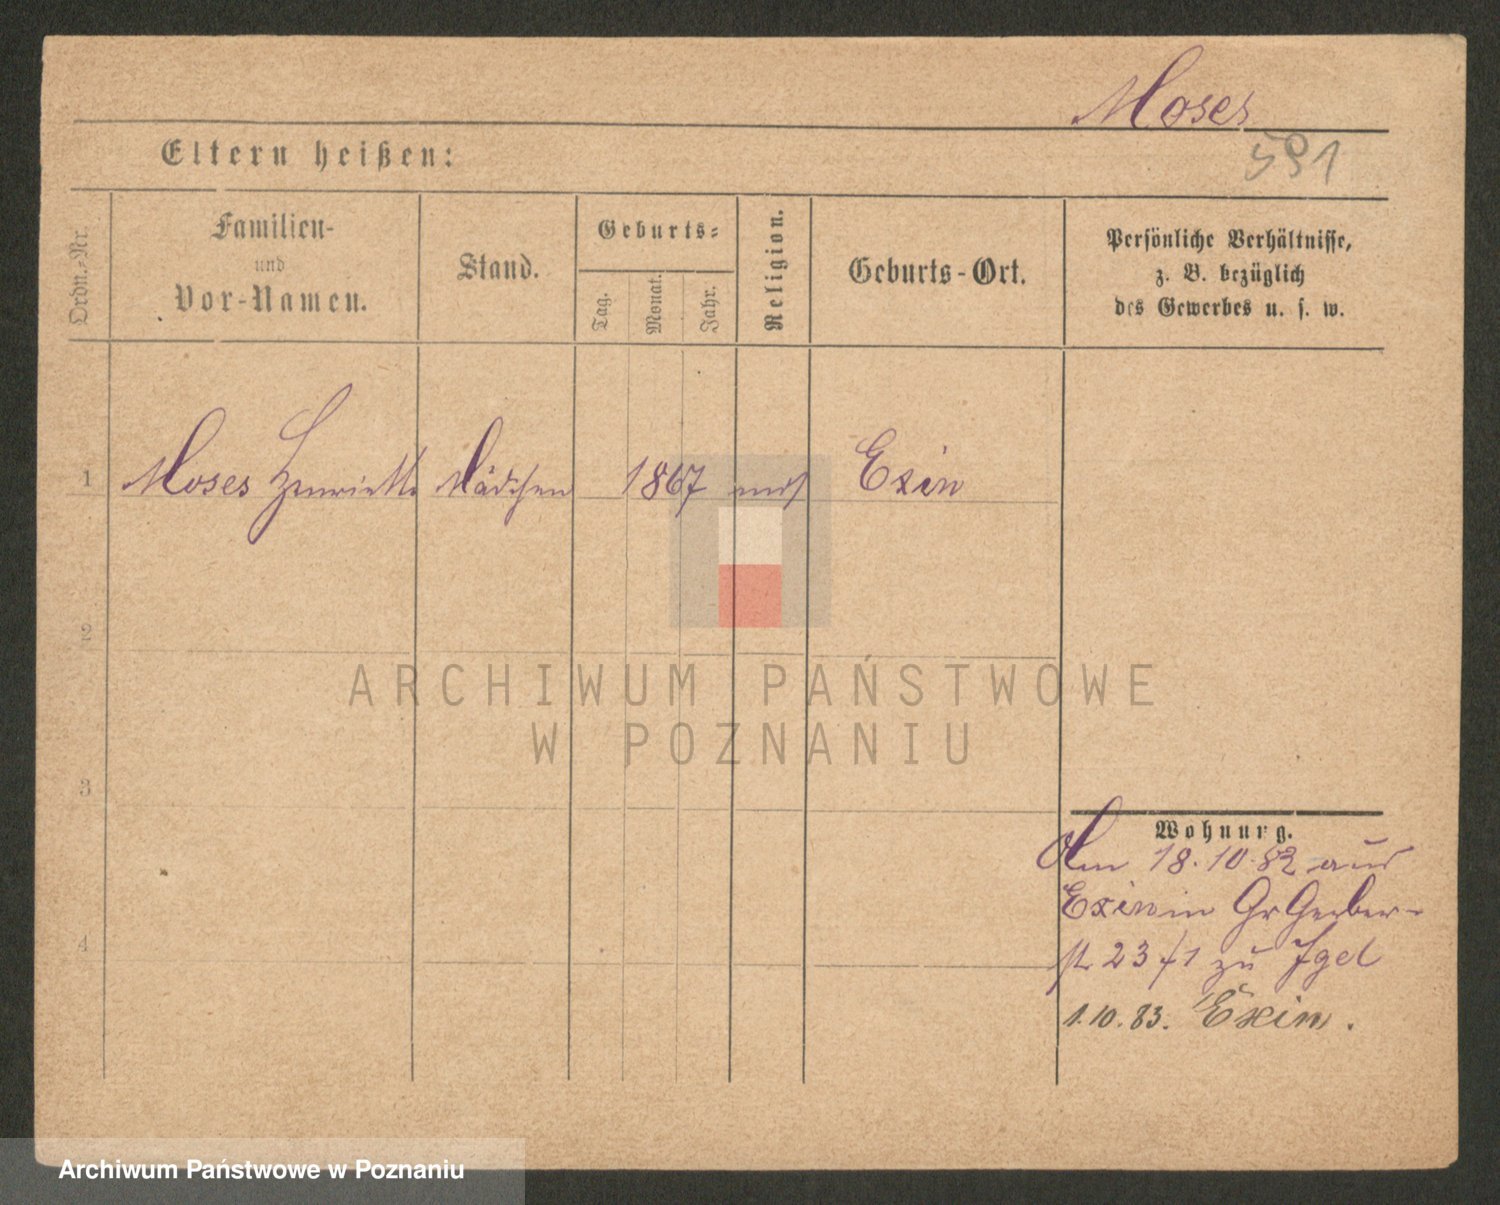 Moses
591
Eltern heißen:
Ordn.-Nr.
Familien-
und
Vor-Namen.
Stand.
Geburts-
Tag.
Monat.
Jahr.
Religion.
Geburts-Ort.
Persönliche Verhältnisse,
z. B. bezüglich
des Gewerbes u. s. w.
1 Moses Henriette Mädchen 1867 mos Exin
2
3
4
Wohnung.
Am 18.10.82 aus
Exin in Gr Gerber-
st. 23 /1 zu Igel
1.10.83. Exin.
ARCHIWUM PAŃSTWOWE
W POZNANIU
Archiwum Państwowe w Poznaniu